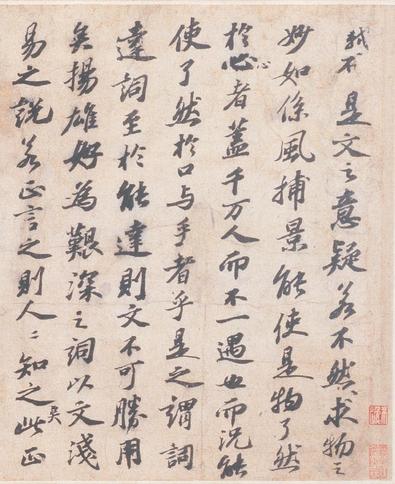 軾不是文之意疑若不然求物之
妙如係風捕景能使是物了然
於心者蓋千万人而不一遇也而況能
使了然於口与手者乎是之謂詞
達詞至於能達則文不可勝用
矣揚雄好為艱深之詞以文淺
易之說若正言之則人〻知之矣此正